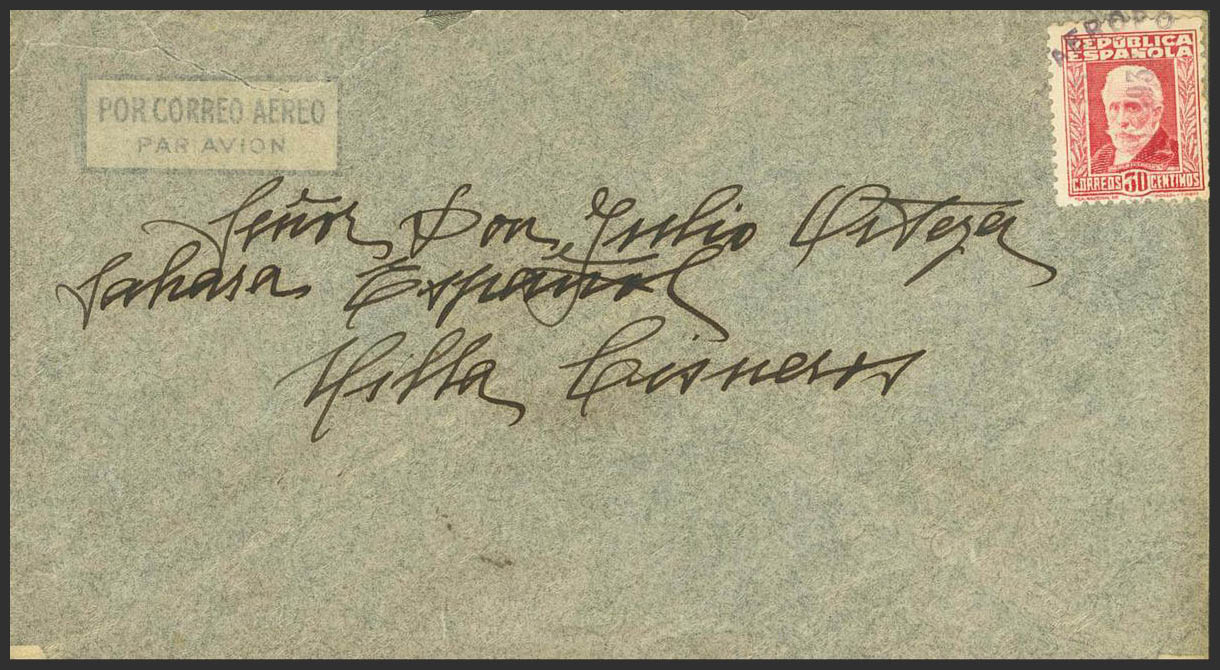 POR CORREO AEREO
PAR AVION
AERODRO
REPÚBLICA
ESPAÑOLA
CORREOS 30 CENTIMOS
Señor Don Julio Ortega
Sahara Español
Villa Cisneros